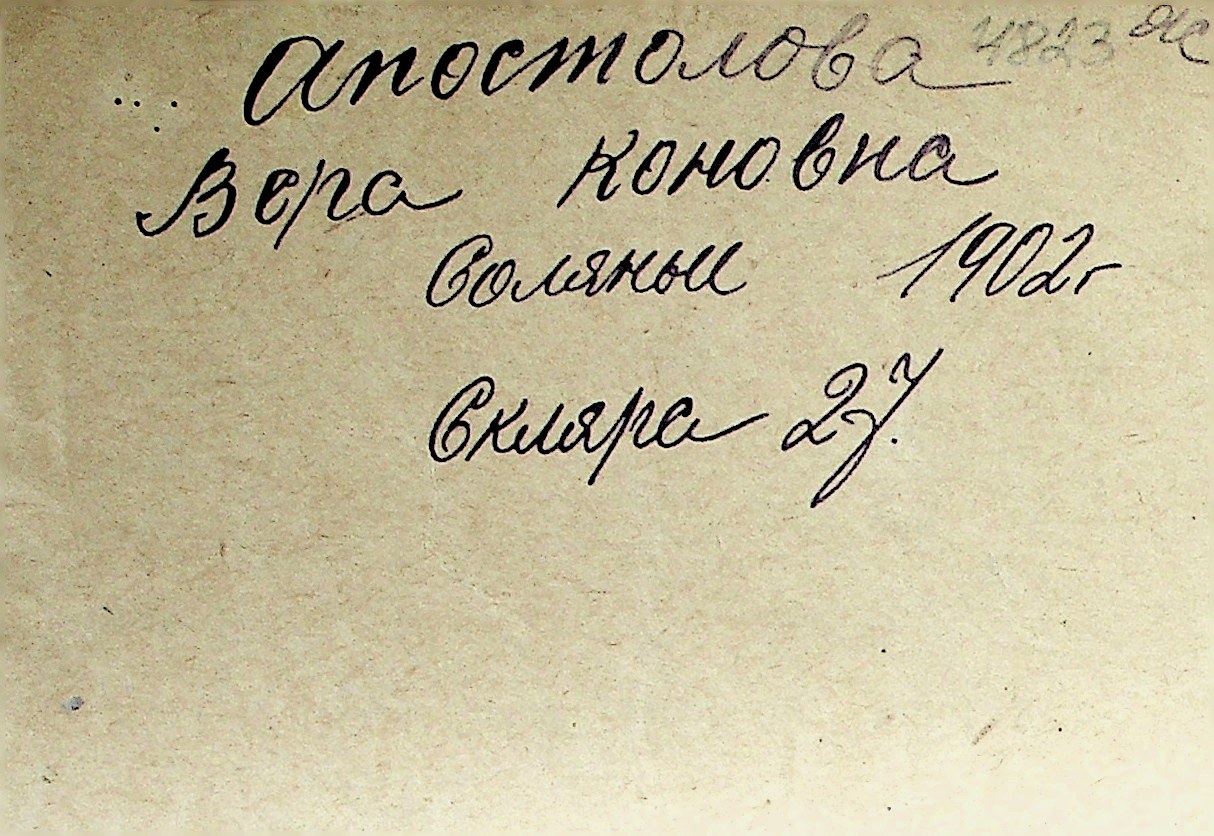 Апостолова 4823
Вера Коновна
Соляные 1902г
Скляра 27.